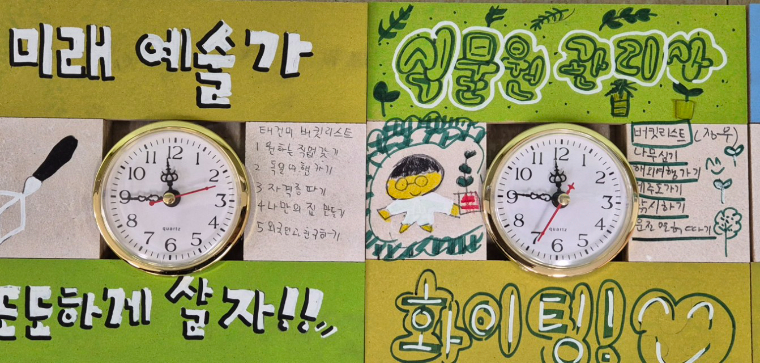 미래 예술가
태건이 버킷리스트
1 원하는 직업 갖기
2 독일 여행 가기
3 자격증 따기
4 나만의 집 만들기
5 외국인과 친구하기
도도하게 살자!!
12
1
2
3
4
5
6
7
8
9
10
11
QUARTZ
식물원 관리사
버킷리스트
나무심기
해외여행 가기
제주도가기
낚시하기
운전면허 따기
12
1
2
3
4
5
6
7
8
9
10
11
QUARTZ
화이팅!